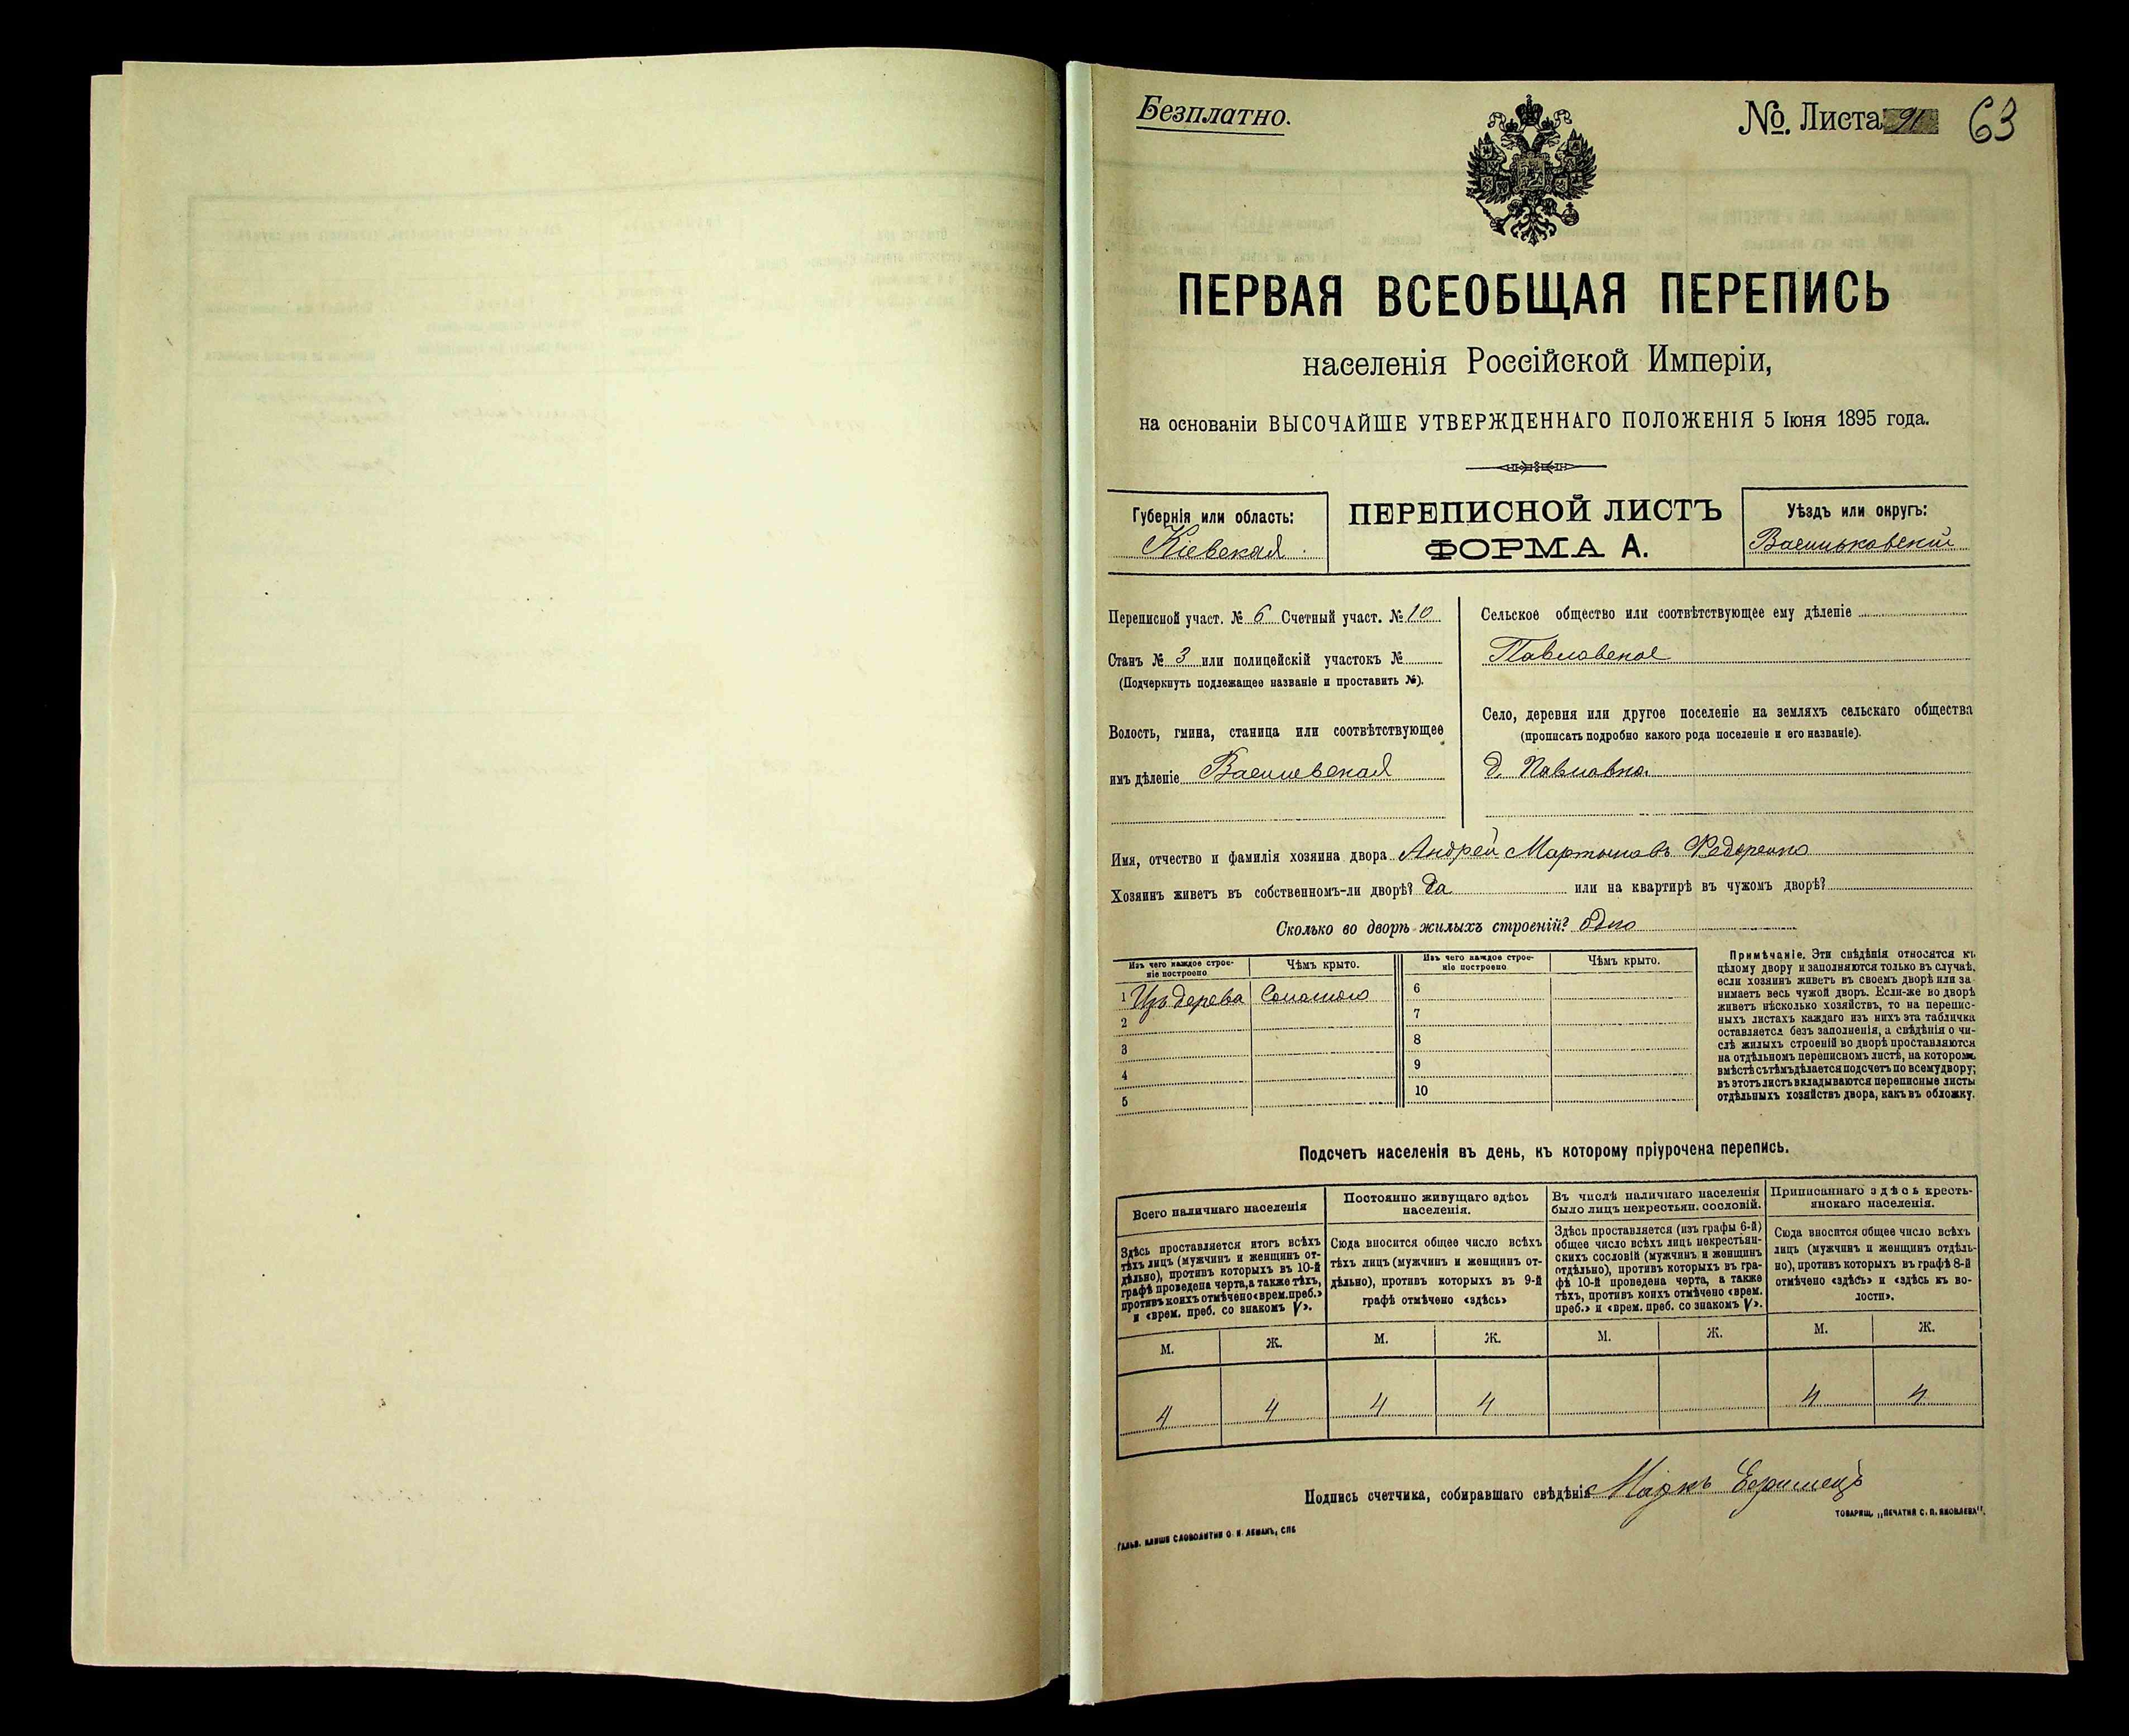 Безплатно.
№. Листа 91 63
ПЕРВАЯ ВСЕОБЩАЯ ПЕРЕПИСЬ
населенія Россійской Имперіи,
на основаніи ВЫСОЧАЙШЕ УТВЕРЖДЕННАГО ПОЛОЖЕНІЯ 5 Іюня 1895 года.
Губернія или область:
Кіевская
ПЕРЕПИСНОЙ ЛИСТЪ
ФОРМА А.
Уѣздъ или округъ:
Васильковскій
Переписной участ. № 6 Счетный участ. № 10
Станъ № 3 или полицейскій участокъ №
(Подчеркнуть подлежащее названіе и проставить №).
Волость, гмина, станица или соотвѣтствующее
имъ дѣленіе
Сельское общество или соотвѣтствующее ему дѣленіе
Павловское
Село, деревня или другое поселеніе на земляхъ сельскаго общества
(прописать подробно какого рода поселеніе и его названіе).
д. Павловка.
Имя, отчество и фамилія хозяина двора Андрей Мартыновъ Федоренко
Хозяинъ живетъ въ собственномъ-ли дворѣ? да или на квартирѣ въ чужомъ дворѣ?
Сколько во дворѣ жилыхъ строеній? одно
Изъ чего каждое строе-
ніе построено
Чѣмъ крыто.
Изъ чего каждое строе-
ніе построено
Чѣмъ крыто.
1 Изъ дерева Соломою
2
3
4
5
6
7
8
9
10
Примѣчаніе. Эти свѣдѣнія относятся къ
цѣлому двору и заполняются только въ случаѣ,
если хозяинъ живетъ въ своемъ дворѣ или за-
нимаетъ весь чужой дворъ. Если-же во дворѣ
живетъ нѣсколько хозяйствъ, то на перепис-
ныхъ листахъ каждаго изъ нихъ эта табличка
оставляется безъ заполненія, а свѣдѣнія о чи-
слѣ жилыхъ строеній во дворѣ проставляются
на отдѣльномъ переписномъ листѣ, на которомъ
вмѣстѣ съ тѣмъ дѣлается подсчетъ по всему двору;
въ этотъ листъ вкладываются переписные листы
отдѣльныхъ хозяйствъ двора, какъ въ обложку.
Подсчетъ населенія въ день, къ которому пріурочена перепись.
Всего наличнаго населенія
Здѣсь проставляется итогъ всѣхъ
тѣхъ лицъ (мужчинъ и женщинъ от-
дѣльно), противъ которыхъ въ 10-й
графѣ проведена черта, а также тѣхъ,
противъ коихъ отмѣчено «врем. преб.»
и «врем. преб. со знакомъ V».
Постоянно живущаго здѣсь
населенія.
Сюда вносится общее число всѣхъ
тѣхъ лицъ (мужчинъ и женщинъ от-
дѣльно), противъ которыхъ въ 9-й
графѣ отмѣчено «здѣсь»
Въ числѣ наличнаго населенія
было лицъ некрестьян. сословій.
Здѣсь проставляется (изъ графы 6-й)
общее число всѣхъ лицъ некрестьян-
скихъ сословій (мужчинъ и женщинъ
отдѣльно), противъ которыхъ въ гра-
фѣ 10-й проведена черта, а также
тѣхъ, противъ коихъ отмѣчено «врем.
преб.» и «врем. преб. со знакомъ V».
Приписаннаго здѣсь кресть-
янскаго населенія.
Сюда вносится общее число всѣхъ
лицъ (мужчинъ и женщинъ отдѣль-
но), противъ которыхъ въ графѣ 8-й
отмѣчено «здѣсь» и «здѣсь къ во-
лости».
М. Ж. М. Ж. М. Ж. М. Ж.
4 4 4 4 4 4
Подпись счетчика, собиравшаго свѣдѣнія Маркъ
ТОВАРИЩ. „ПЕЧАТНЯ С. П. ЯКОВЛЕВА".
ГАЛЬВ. КЛИШЕ СЛОВОЛИТНИ О. И. ЛЕМАНЪ, СПБ